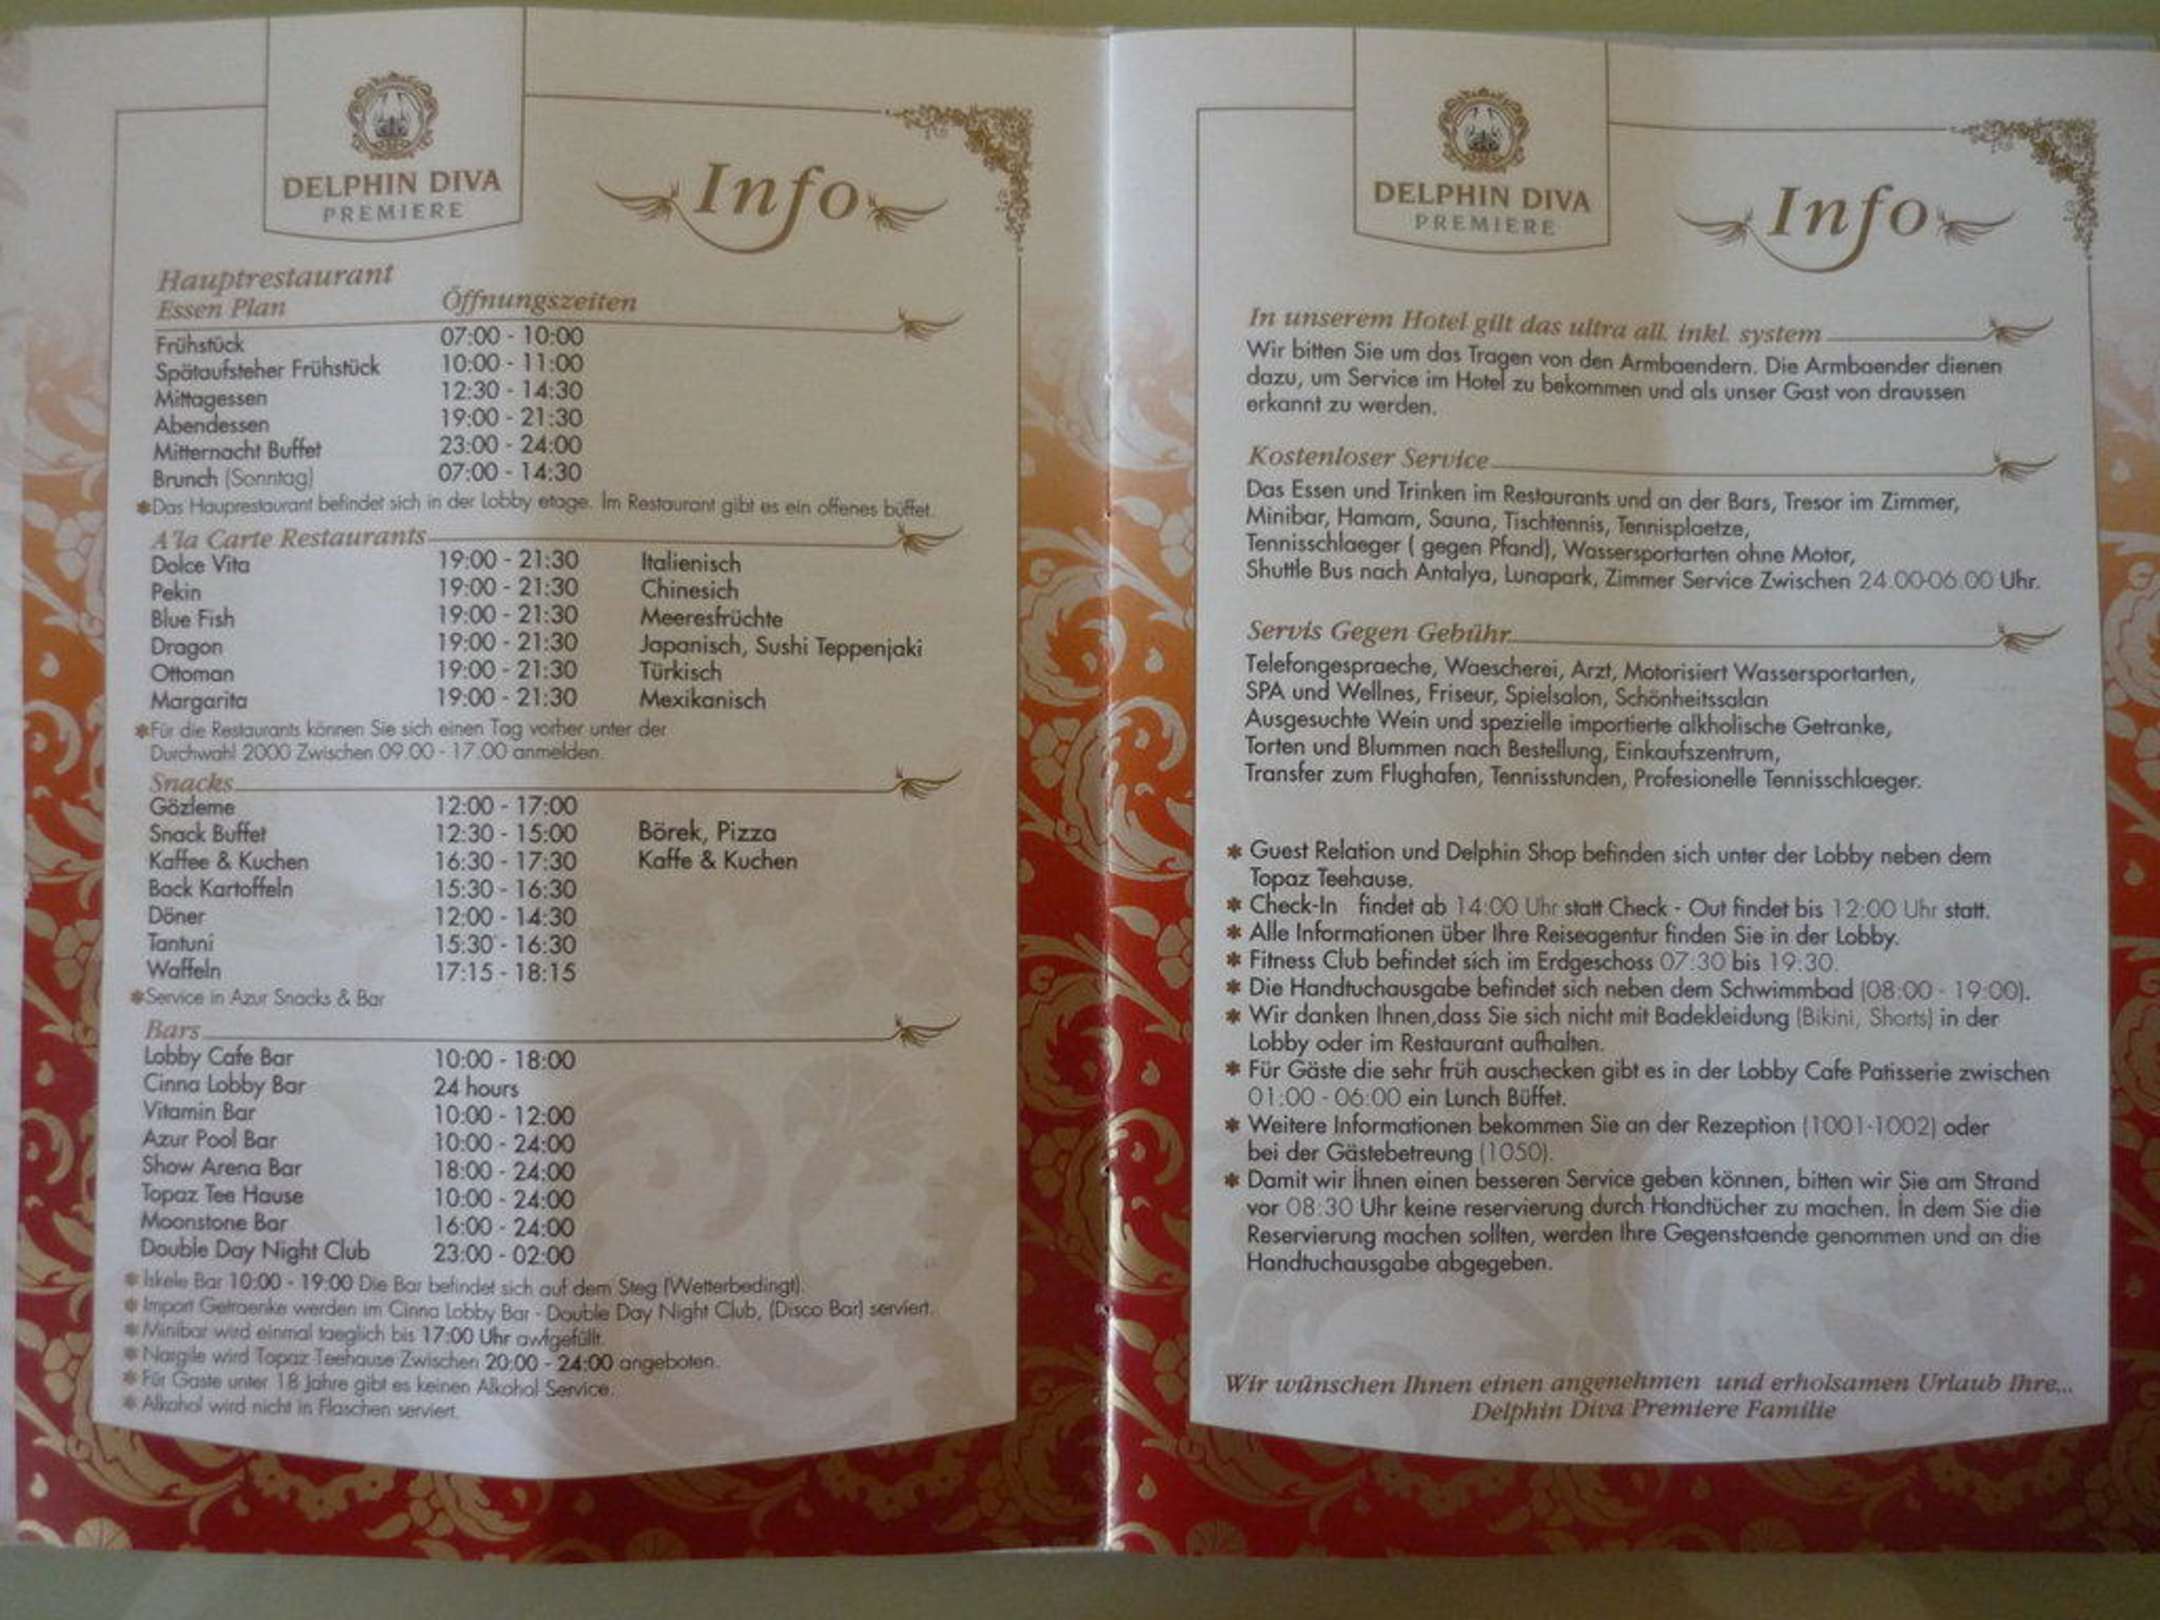 DELPHIN DIVA
PREMIERE
Info
Hauptrestaurant
Essen Plan Öffnungszeiten
Frühstück 07:00 - 10:00
Spätaufsteher Frühstück 10:00 - 11:00
Mittagessen 12:30 - 14:30
Abendessen 19:00 - 21:30
Mitternacht Buffet 23:00 - 24:00
Brunch (Sonntag) 07:00 - 14:30
*Das Hauprestaurant befindet sich in der Lobby etage. Im Restaurant gibt es ein offenes büffet.
A'la Carte Restaurants
Dolce Vita 19:00 - 21:30 Italienisch
Pekin 19:00 - 21:30 Chinesich
Blue Fish 19:00 - 21:30 Meeresfrüchte
Dragon 19:00 - 21:30 Japanisch, Sushi Teppenjaki
Ottoman 19:00 - 21:30 Türkisch
Margarita 19:00 - 21:30 Mexikanisch
*Für die Restaurants können Sie sich einen Tag vorher unter der
Durchwahl 2000 Zwischen 09.00 - 17.00 anmelden.
Snacks
Gözleme 12:00 - 17:00
Snack Buffet 12:30 - 15:00 Börek, Pizza
Kaffee & Kuchen 16:30 - 17:30 Kaffe & Kuchen
Back Kartoffeln 15:30 - 16:30
Döner 12:00 - 14:30
Tantuni 15:30 - 16:30
Waffeln 17:15 - 18:15
*Service in Azur Snacks & Bar
Bars
Lobby Cafe Bar 10:00 - 18:00
Cinna Lobby Bar 24 hours
Vitamin Bar 10:00 - 12:00
Azur Pool Bar 10:00 - 24:00
Show Arena Bar 18:00 - 24:00
Topaz Tee Hause 10:00 - 24:00
Moonstone Bar 16:00 - 24:00
Double Day Night Club 23:00 - 02:00
* İskele Bar 10:00 - 19:00 Die Bar befindet sich auf dem Steg (Wetterbedingt).
* Import Getraenke werden im Cinna Lobby Bar - Double Day Night Club, (Disco Bar) serviert.
* Minibar wird einmal taeglich bis 17:00 Uhr awfgefüllt.
* Nargile wird Topaz Teehause Zwischen 20:00 - 24:00 angeboten.
* Für Gaste unter 18 Jahre gibt es keinen Alkohol Service.
* Alkohol wird nicht in Flaschen serviert.
DELPHIN DIVA
PREMIERE
Info
In unserem Hotel gilt das ultra all. inkl. system
Wir bitten Sie um das Tragen von den Armbaendern. Die Armbaender dienen
dazu, um Service im Hotel zu bekommen und als unser Gast von draussen
erkannt zu werden.
Kostenloser Service
Das Essen und Trinken im Restaurants und an der Bars, Tresor im Zimmer,
Minibar, Hamam, Sauna, Tischtennis, Tennisplaetze,
Tennisschlaeger ( gegen Pfand), Wassersportarten ohne Motor,
Shuttle Bus nach Antalya, Lunapark, Zimmer Service Zwischen 24.00-06.00 Uhr.
Servis Gegen Gebühr
Telefongespraeche, Waescherei, Arzt, Motorisiert Wassersportarten,
SPA und Wellnes, Friseur, Spielsalon, Schönheitssalan
Ausgesuchte Wein und spezielle importierte alkholische Getranke,
Torten und Blummen nach Bestellung, Einkaufszentrum,
Transfer zum Flughafen, Tennisstunden, Profesionelle Tennisschlaeger.
* Guest Relation und Delphin Shop befinden sich unter der Lobby neben dem
Topaz Teehause.
* Check-In findet ab 14:00 Uhr statt Check - Out findet bis 12:00 Uhr statt.
* Alle Informationen über Ihre Reiseagentur finden Sie in der Lobby.
* Fitness Club befindet sich im Erdgeschoss 07:30 bis 19:30.
* Die Handtuchausgabe befindet sich neben dem Schwimmbad (08:00 - 19:00).
* Wir danken Ihnen,dass Sie sich nicht mit Badekleidung (Bikini, Shorts) in der
Lobby oder im Restaurant aufhalten.
* Für Gäste die sehr früh auschecken gibt es in der Lobby Cafe Patisserie zwischen
01:00 - 06:00 ein Lunch Büffet.
* Weitere Informationen bekommen Sie an der Rezeption (1001-1002) oder
bei der Gästebetreung (1050).
* Damit wir İhnen einen besseren Service geben können, bitten wir Sie am Strand
vor 08:30 Uhr keine reservierung durch Handtücher zu machen. İn dem Sie die
Reservierung machen sollten, werden Ihre Gegenstaende genommen und an die
Handtuchausgabe abgegeben.
Wir wünschen Ihnen einen angenehmen und erholsamen Urlaub Ihre...
Delphin Diva Premiere Familie